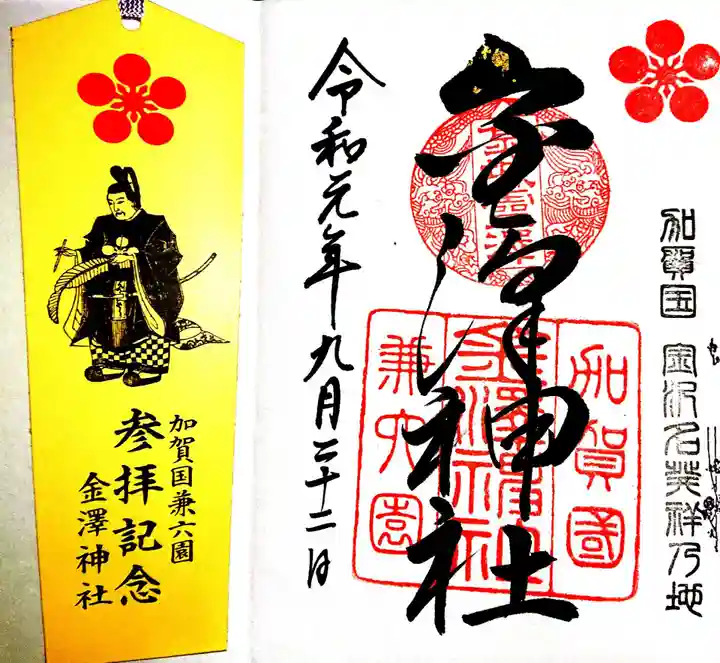 加賀国 金沢名発祥乃地
金澤神社
加賀國
金澤神社
兼六園
令和元年九月二十二日
加賀国兼六園
金澤神社
参拝記念